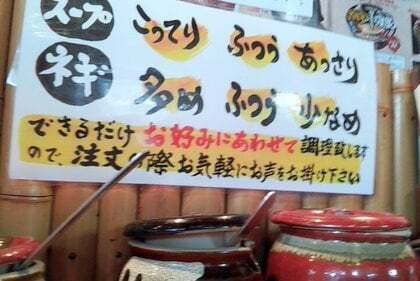 スープ こってり ふつう あっさり
ネギ 多め ふつう 少なめ
できるだけ お好みにあわせて 調理致します
ので、注文 際 お気軽にお声をお掛け下さい